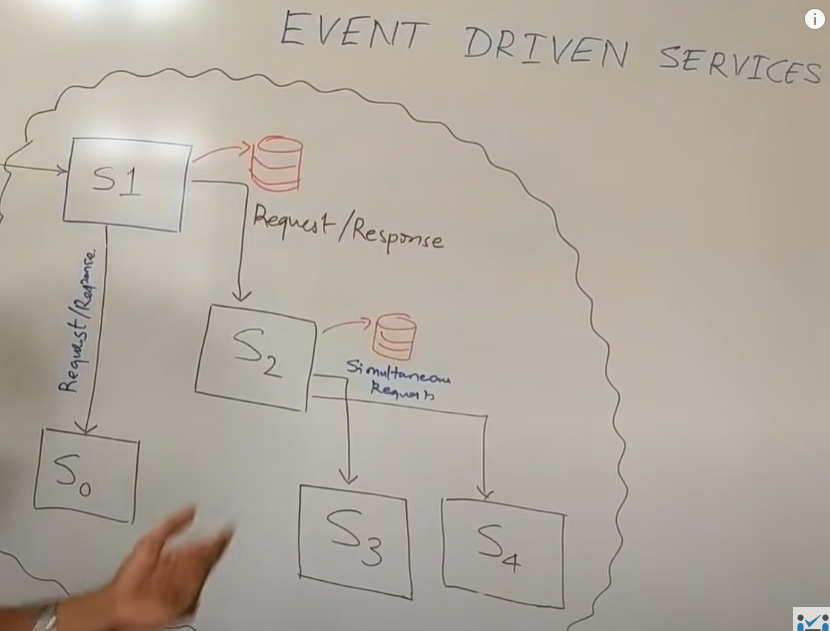 EVENT DRIVEN SERVICES
S1
Request/Response
Request/Response
S2
Simultaneous
Requests
S0
S3
S4